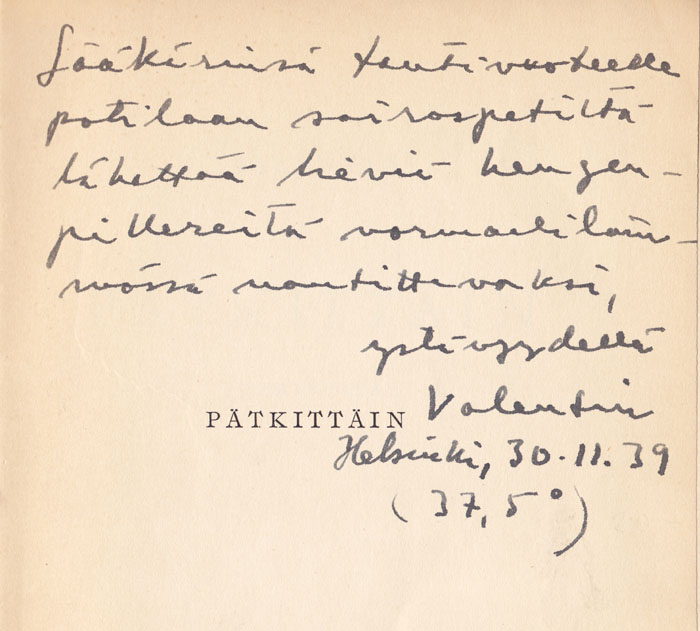 Lääkärinsä tautivuoteelle
potilaan sairaspetiltä
lähettää lieviä hengen-
pillereitä normaaliläm-
mössä nautittavaksi,
ystävyydellä
PÄTKITTÄIN Valentin
Helsinki, 30.11.39
(37,5°)